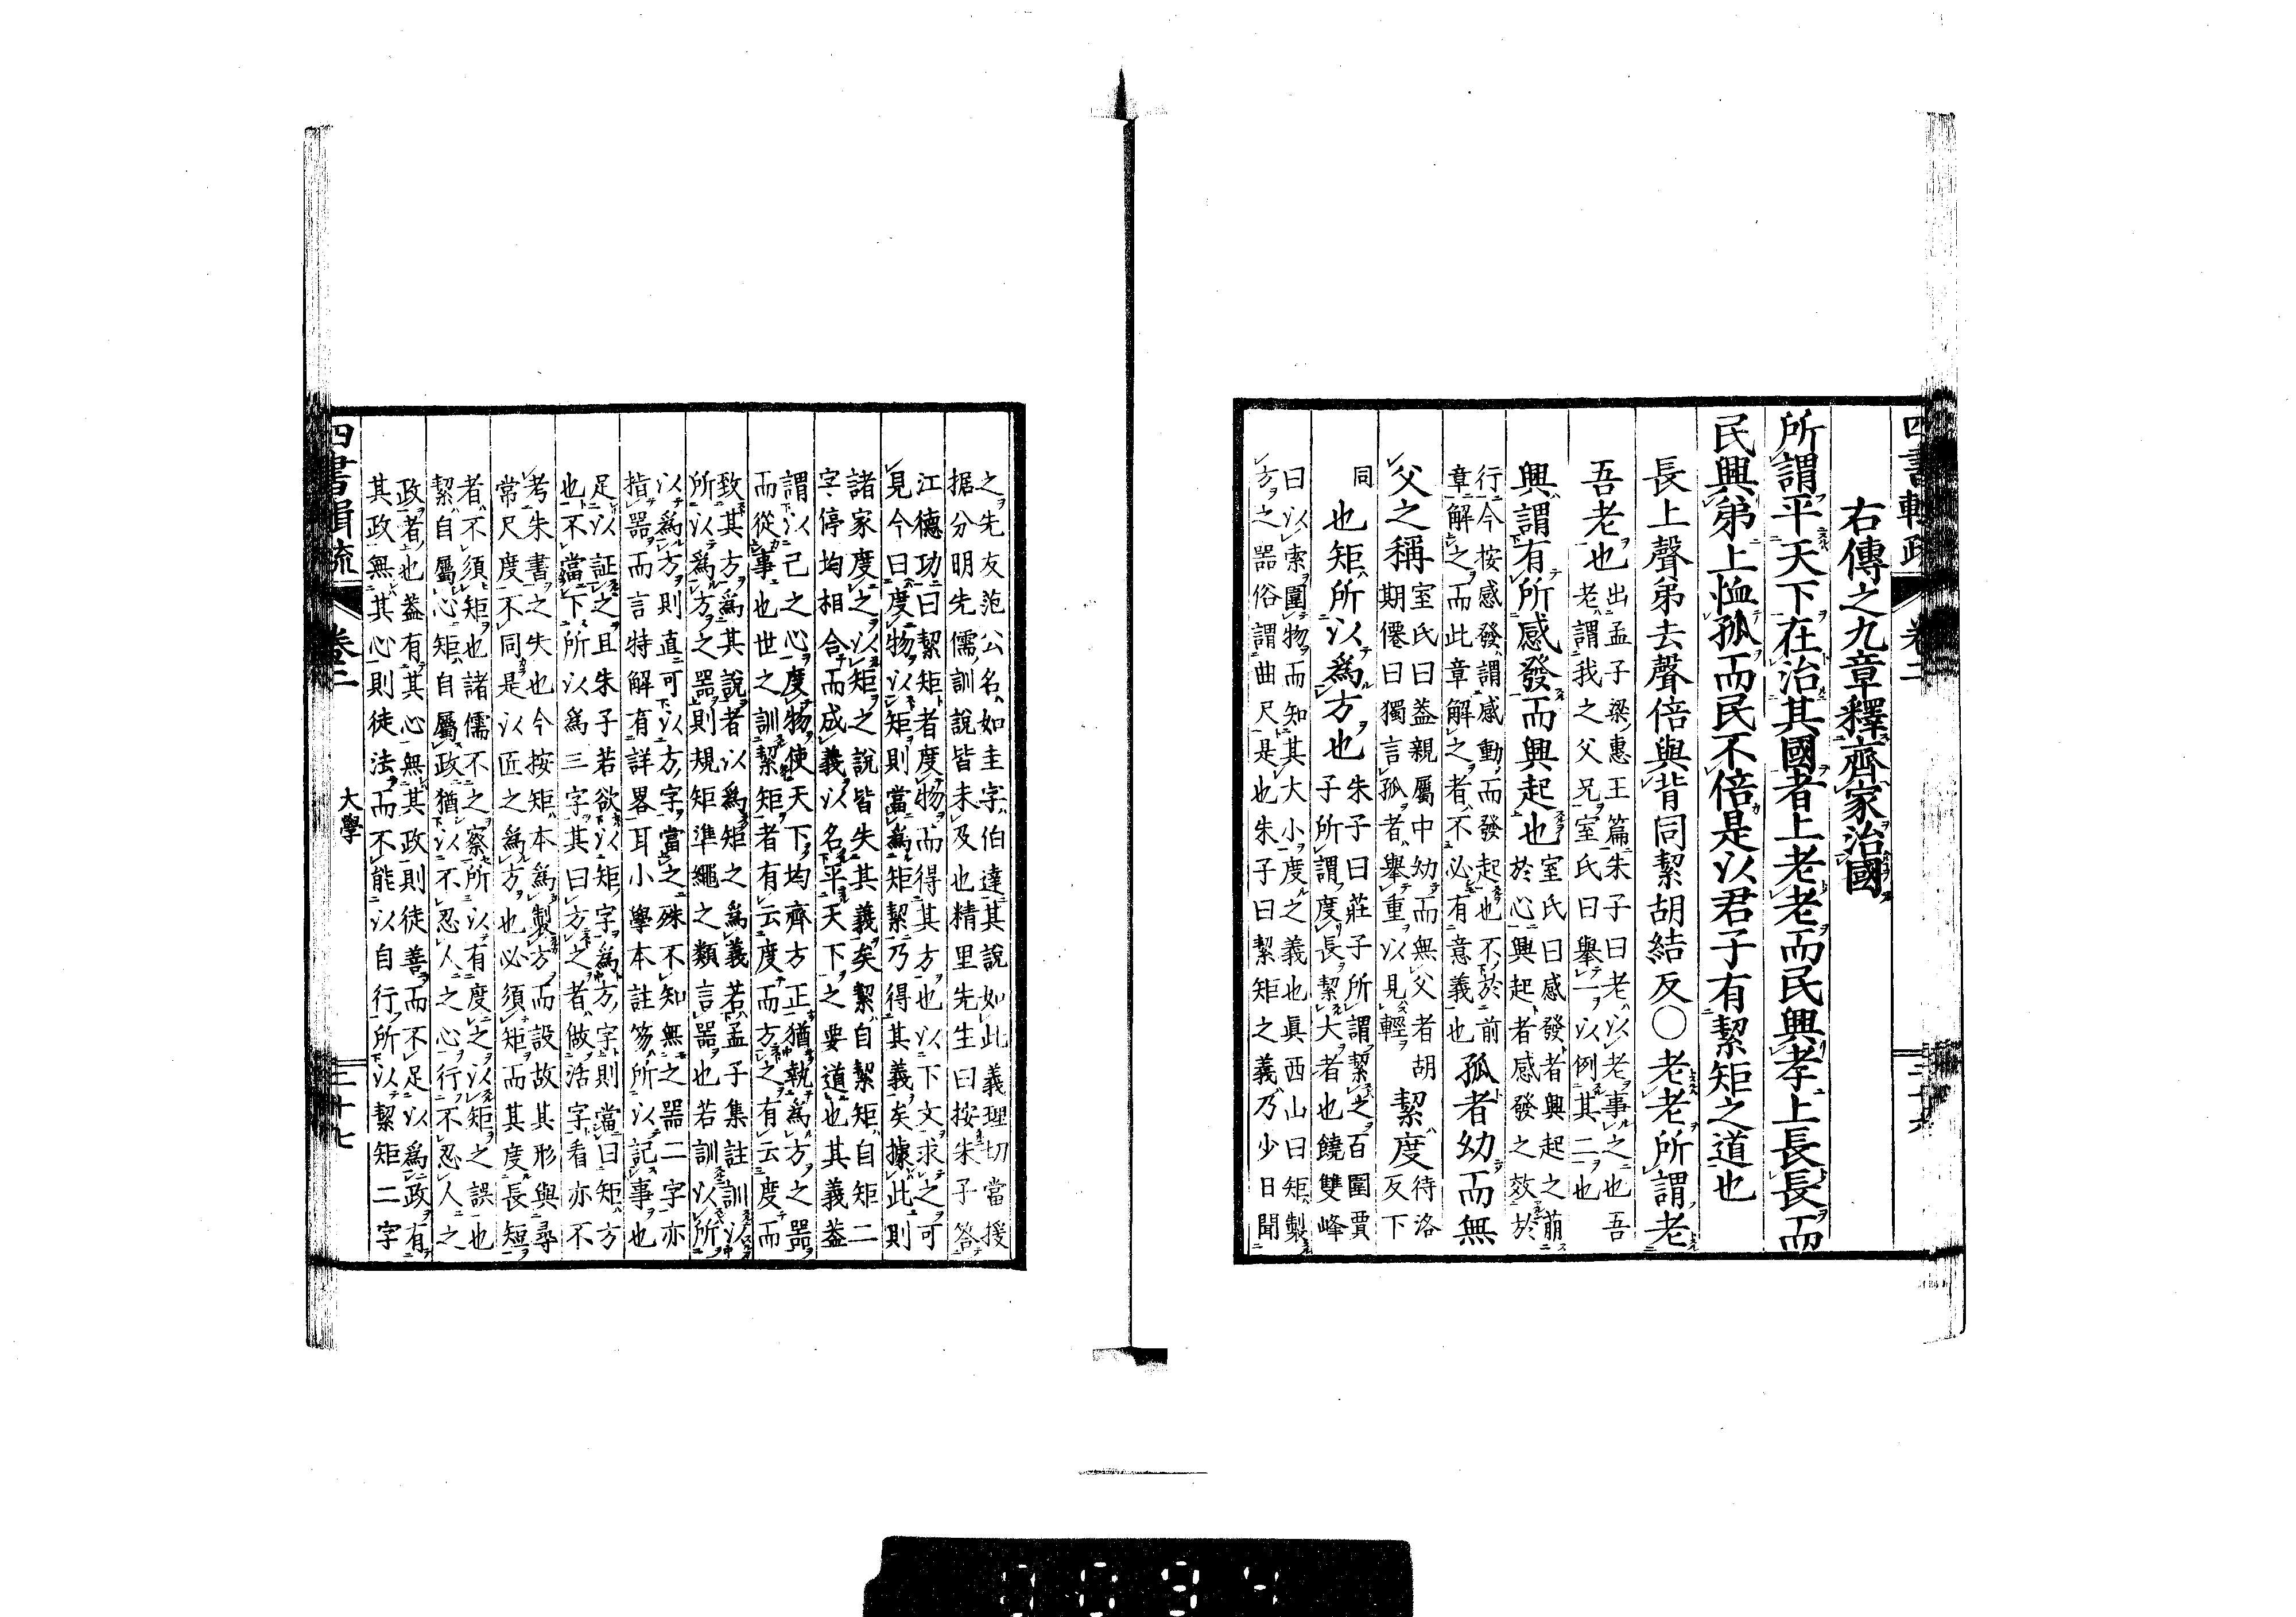 四書輯疏 卷二 二十六
右傳之九章釋齊家治國
所謂平天下在治其國者上老老而民興孝上長長而
民興弟上恤孤而民不倍是以君子有絜矩之道也
長上聲弟去聲倍與背同絜胡結反○老老所謂老
吾老也出孟子梁惠王篇朱子曰老以老事之也吾
老謂我之父兄室氏曰舉一以例其二也
興謂有所感發而興起也室氏曰感發者興起之萠
於心興起者感發之效於
行今按感發謂感動而發起也不於前
章解之而此章解之者不必有意義也孤者幼而無
父之稱室氏曰蓋親屬中幼而無父者胡
期僊曰獨言孤者舉重以見輕絜度待洛
反下
同也矩所以爲方也朱子曰莊子所謂絜之百圍賈
子所謂度長絜大者也饒雙峰
曰以索圍物而知其大小度之義也眞西山曰矩製
方之器俗謂曲尺是也朱子曰絜矩之義乃少日聞
之先友范公名如圭字伯達其說如此義理切當援
据分明先儒訓說皆未及也精里先生曰按朱子答
江德功曰絜矩者度物而得其方也以下文求之可
見今曰度物以矩則當爲矩絜乃得其義矣據此則
諸家度之以矩之說皆失其義矣絜自絜矩自矩二
字停均相合而成義以名平天下之要道也其義蓋
謂以己之心度物使天下均齊方正猶執爲方之器
而從事也世之訓絜矩者有云度而方之有云度而
致其方爲其說者以爲矩之爲義若孟子集註訓以
所以爲方之器則規矩準繩之類言器也若訓以所
以爲方則直可以方字當之殊不知無之器二字亦
指器而言特解有詳畧耳小學本註笏所以記事也
足以証之且朱子若欲以矩字爲方字則當曰矩方
也不當下所以爲三字其曰方之者做活字看亦不
考朱書之失也今按矩本爲製方而設故其形與尋
常尺度不同是以匠之爲方也必須矩而其度長短
者不須矩也諸儒不之察所以有度之以矩之誤也
絜自屬心矩自屬政猶以不忍人之心行不忍人之
政者也蓋有其心無其政則徒善而不足以爲政有
其政無其心則徒法而不能以自行所以絜矩二字
四書輯疏 卷二 大學 二十七